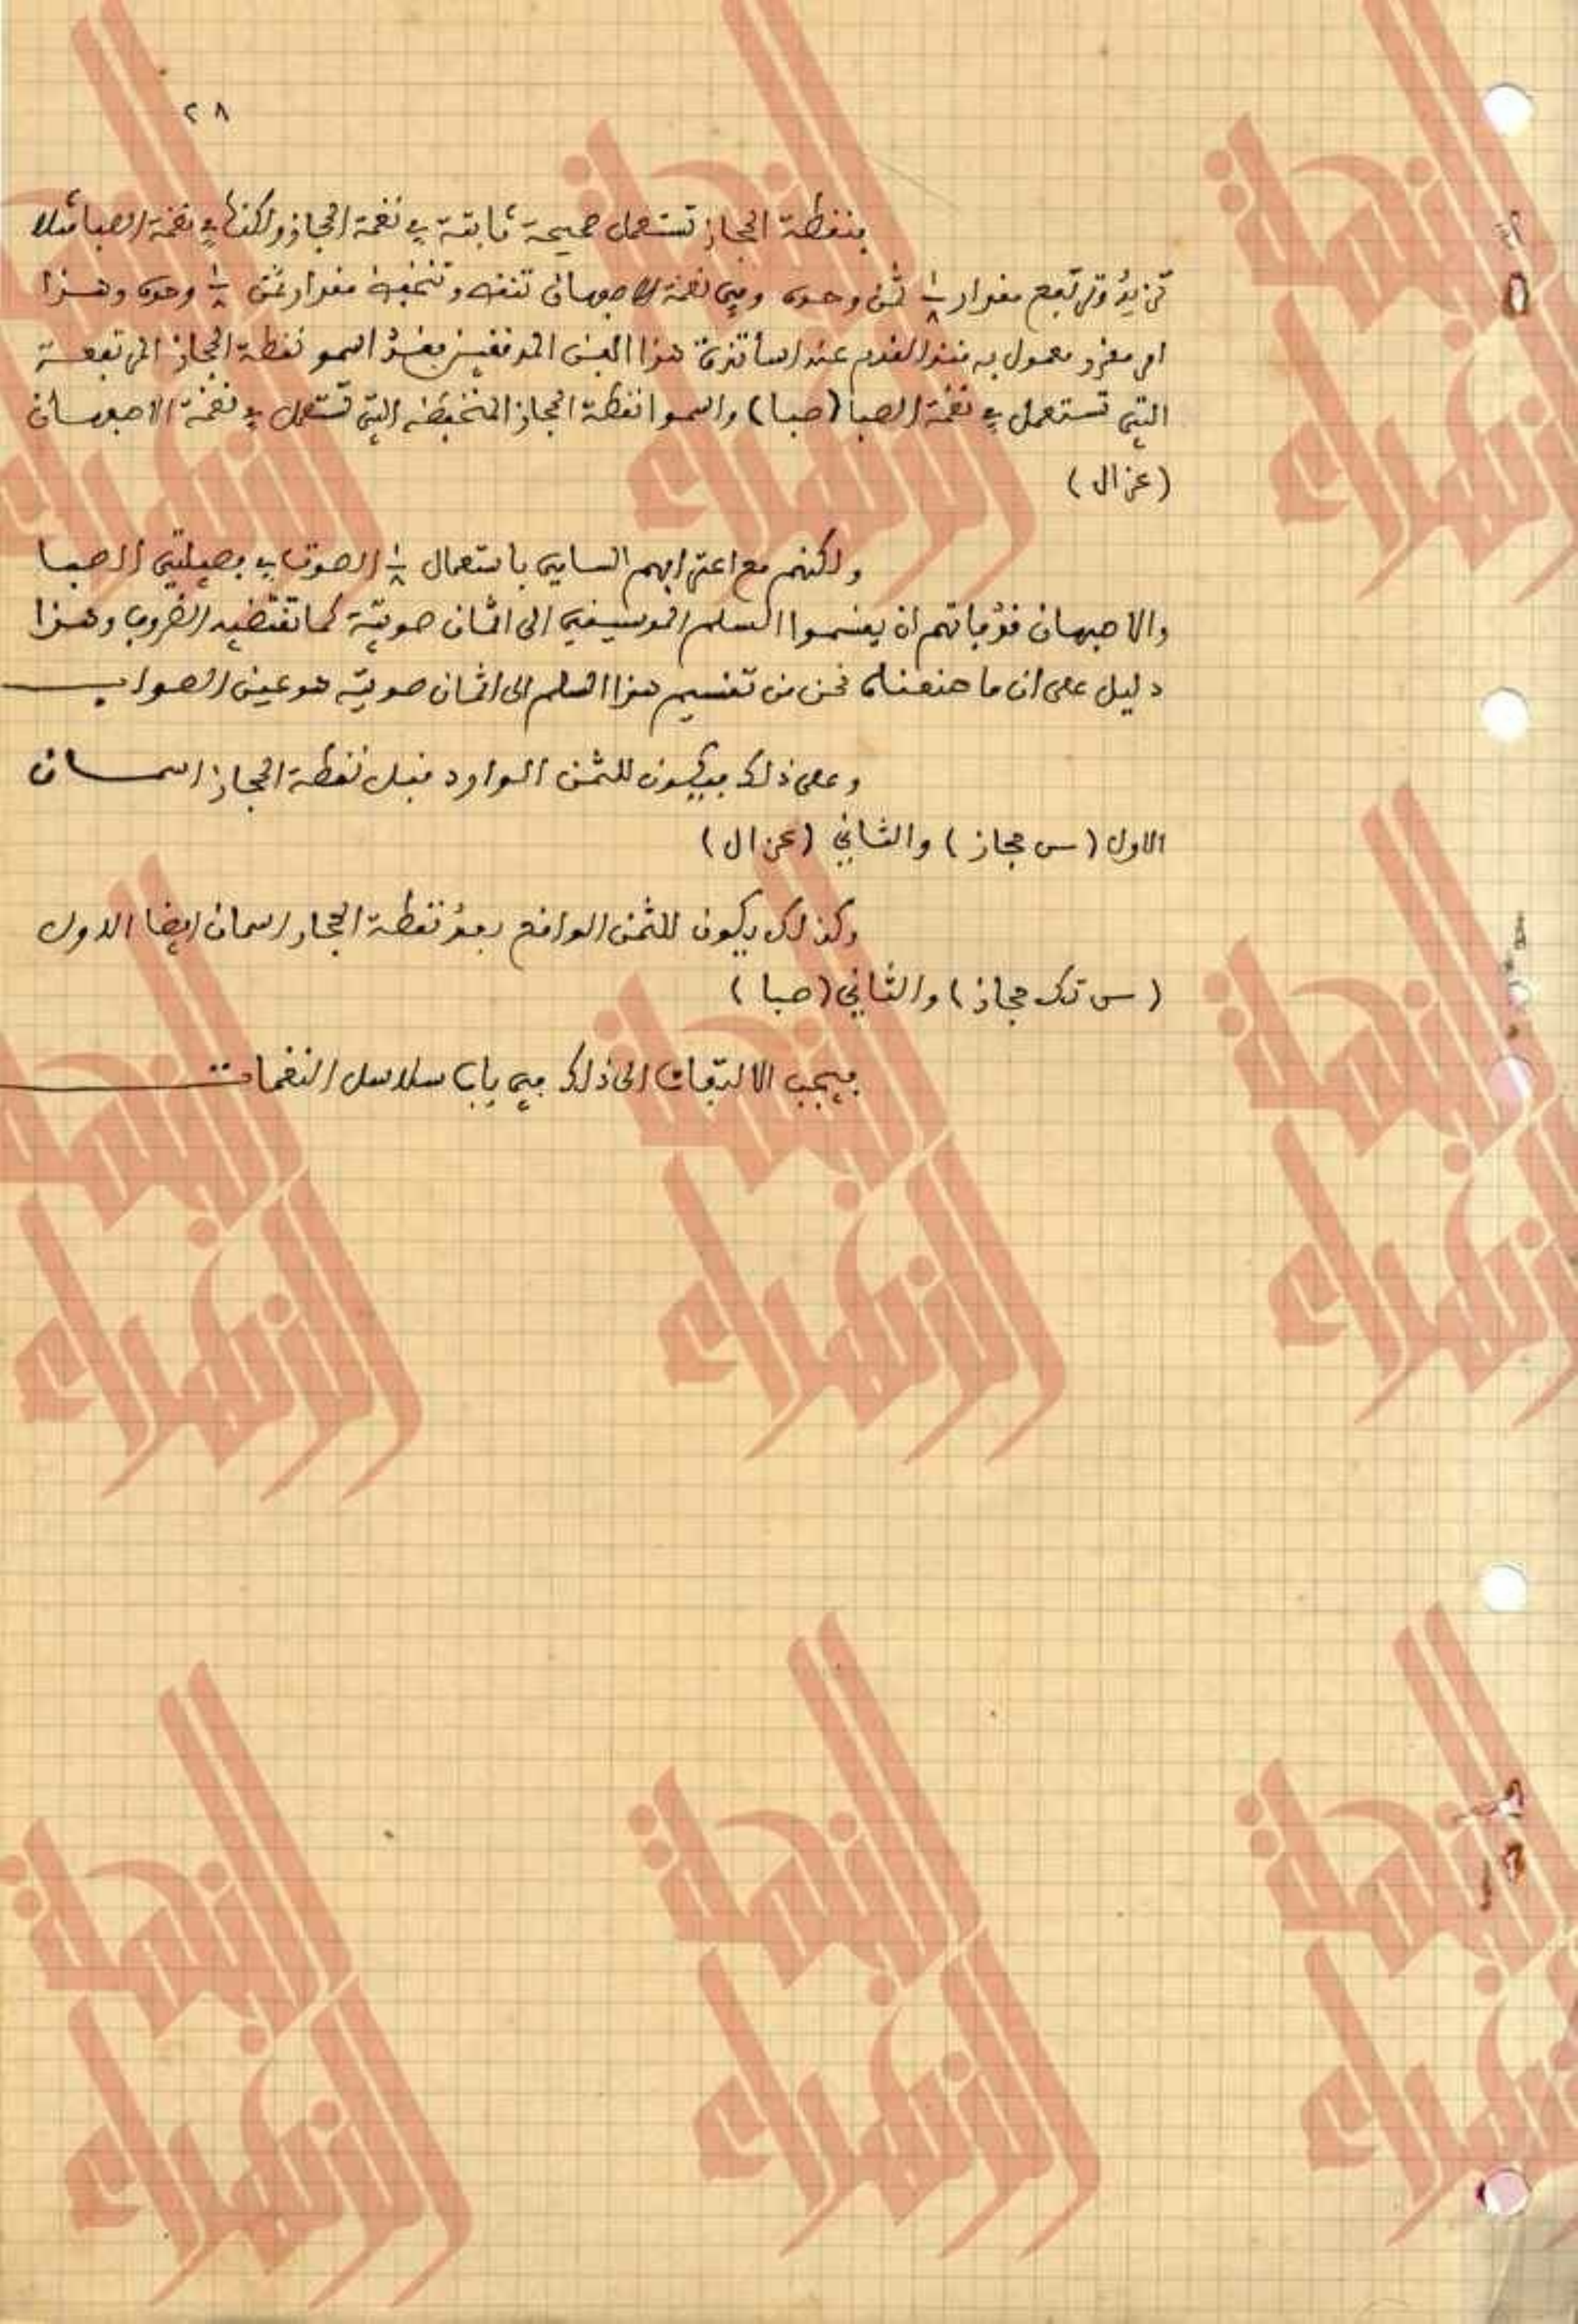 ٢٨
فنقطة الحجاز تستعمل صحيحة ثابتة في نغمة الحجاز ولكنها في نغمة الصبا مثلا
تزيد وترتفع مقدار ١/٨ ثمن وحدة وفي نغمة الاصبهان تنقص وتنخفض مقدار ثمن ١/٨ وحدة وهذا
امر مقرر معمول به منذ القدم عند اساتذة هذا الفن المدققين فقد اسمو نقطة الحجاز المرتفعة
التي تستعمل في نغمة الصبا (صبا) واسموا نقطة الحجاز المنخفضه التي تستعمل في نغمة الاصبهان
(عزال)
ولكنهم مع اعترافهم السابق باستعمال ١/٨ الصوت في فصيلتي الصبا
والاصبهان فقد فاتهم ان يقسموا السلم الموسيقي الى اثمان صوتية كما تقتضيه الضروب وهذا
دليل على ان ما صنعناه نحن من تقسيم هذا السلم الى اثمان صوتيه هو عين الصواب
وعلى ذلك فيكون للثمن الوارد قبل نقطة الحجاز اسمان
الاول (س حجاز) والثاني (عزال)
وكذلك يكون للثمن الواقع بعد نقطة الحجاز اسمان ايضا الاول
(س تك حجاز) والثاني (صبا)
فيجب الالتفات الى ذلك في باب سلاسل النغمات
النهضة
الزهراء